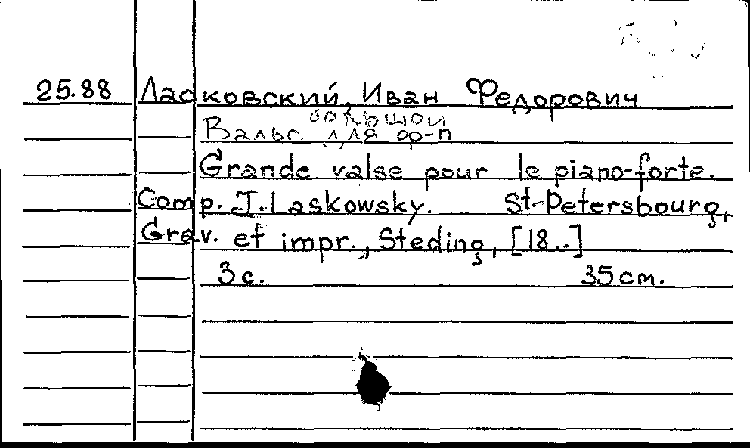 25.88 Ласковский, Иван Федорович
большой
Вальс для ф-п
Grande valse pour le piano-forte.
Comp. J. Laskowsky. St-Petersbourg,
Grav. et impr., Steding, [18..]
3 с. 35 cm.